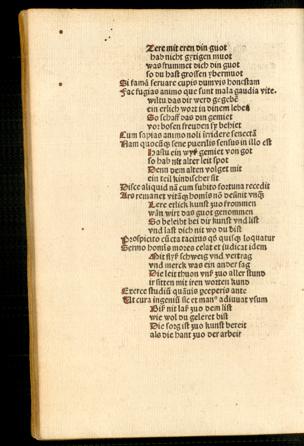 Zere mit eren din guot
hab nicht gytigen muot
was frummet dich din guot
so du hast grossen ybermuot
Si famā seruare cupis dumvis honestam
Fac fugias animo que sunt mala gaudia vite.
wiltu das dir werd gegebē
ein erlich wort in dinem leben
So schaff das din gemiet
vor bosen freuden sy behiet
Cum sapias animo noli irridere senectā
Nam quocūq; sene puerilis sensus in illo est
Hastu ein wyß gemiet von got
so hab nit alter leit spot
Denn dem alten volget mit
ein teil kindischer sit
Disce aliquid nā cum subito fortuna recedit
Ars remanet vitāq; homīs nō deserit vnq̄
Lere erlick kunst zuo frommen
wān wirt das guot genommen
So beleibt bei dir kunst vnd list
vnd last dich nit wo du bist
Prospicito cūcta tacitus qd quisq; loquatur
Sermo homīs mores celat et iudicat idem
Mit flyß schweig vnd vertrag
vnd merck was ein ander sag
Die leit thuon vnß zuo aller stund
ir sitten mit iren worten kund
Exerce studiū quāuis pceperis ante
Ut cura ingeniū sic et man⁹ adiuuat vsum
Biß nit laß zuo dem list
wie wol du geleret bist
Die sorg ist zuo kunst bereit
als die hant zuo der arbeit